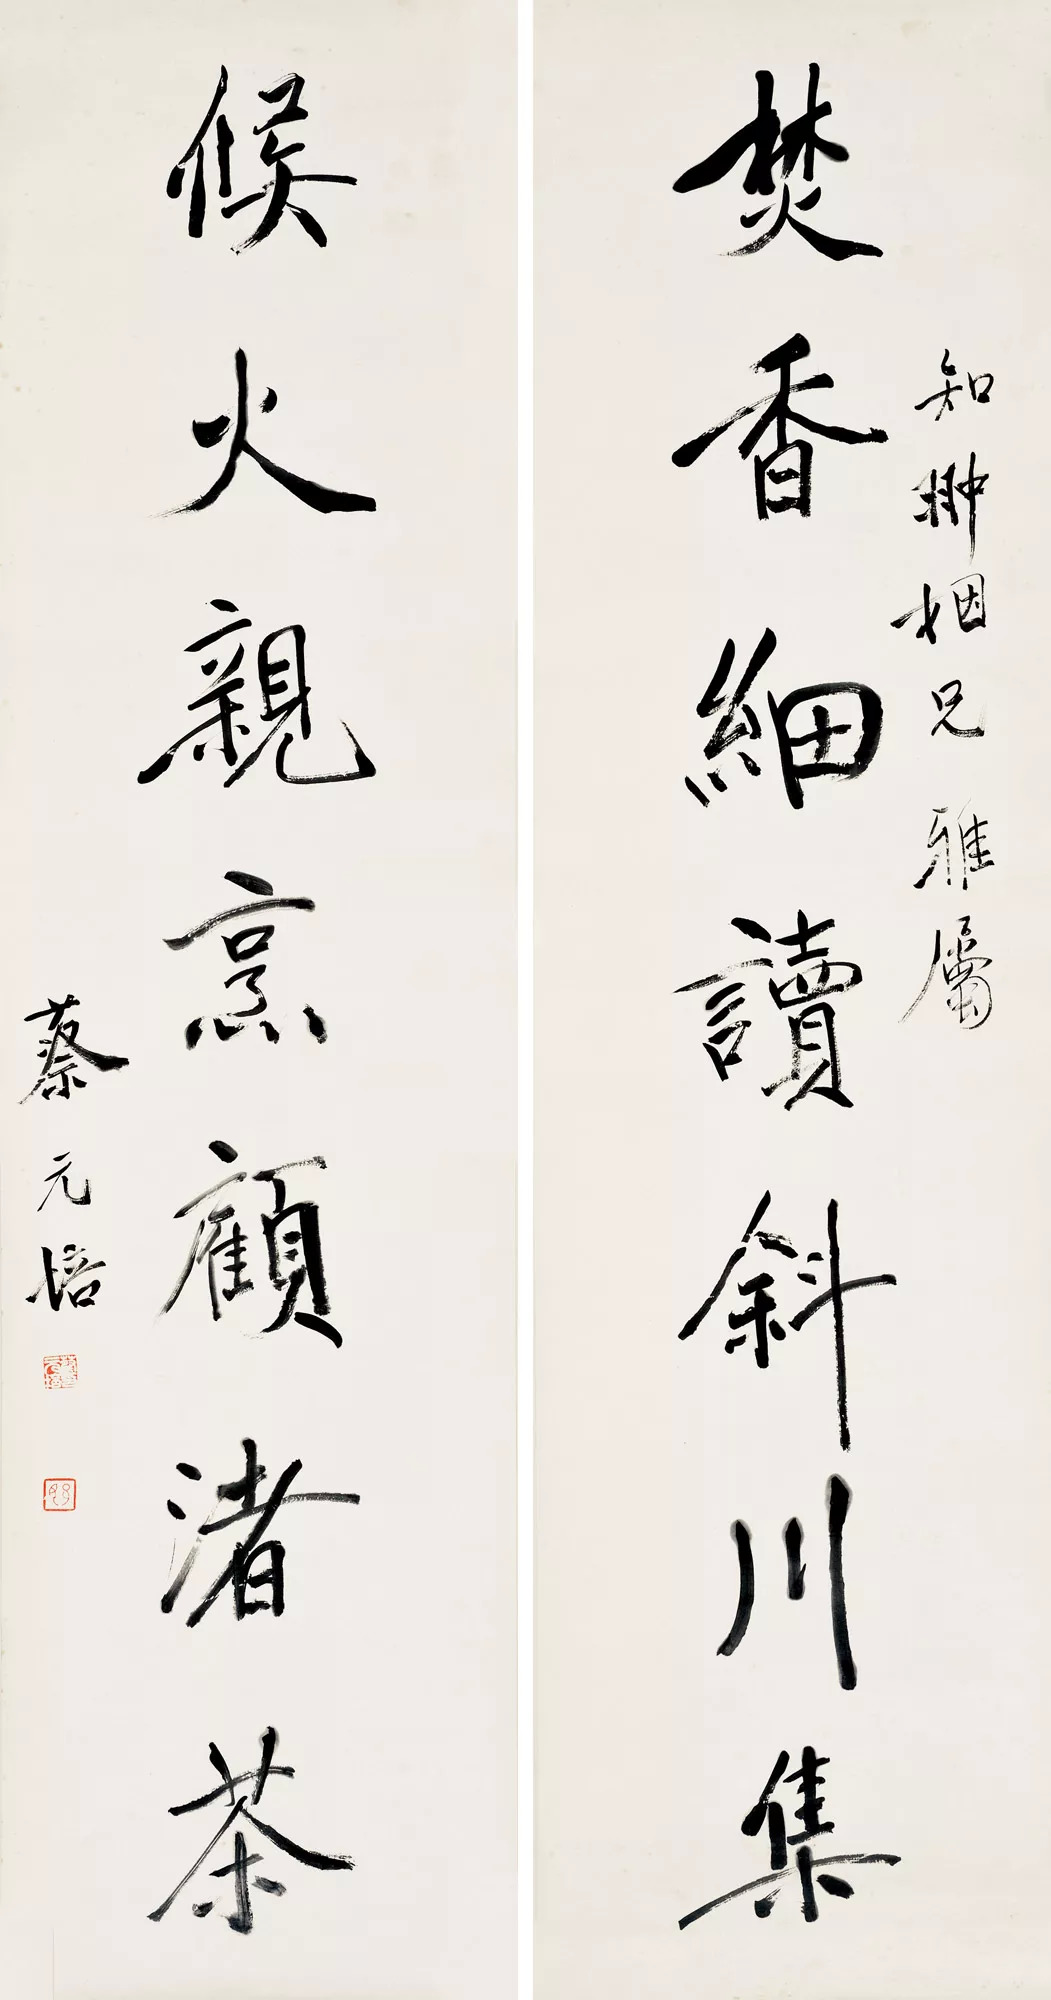 焚香細讀斜川集
知翀姻兄雅屬
候火親烹顧渚茶
蔡元培